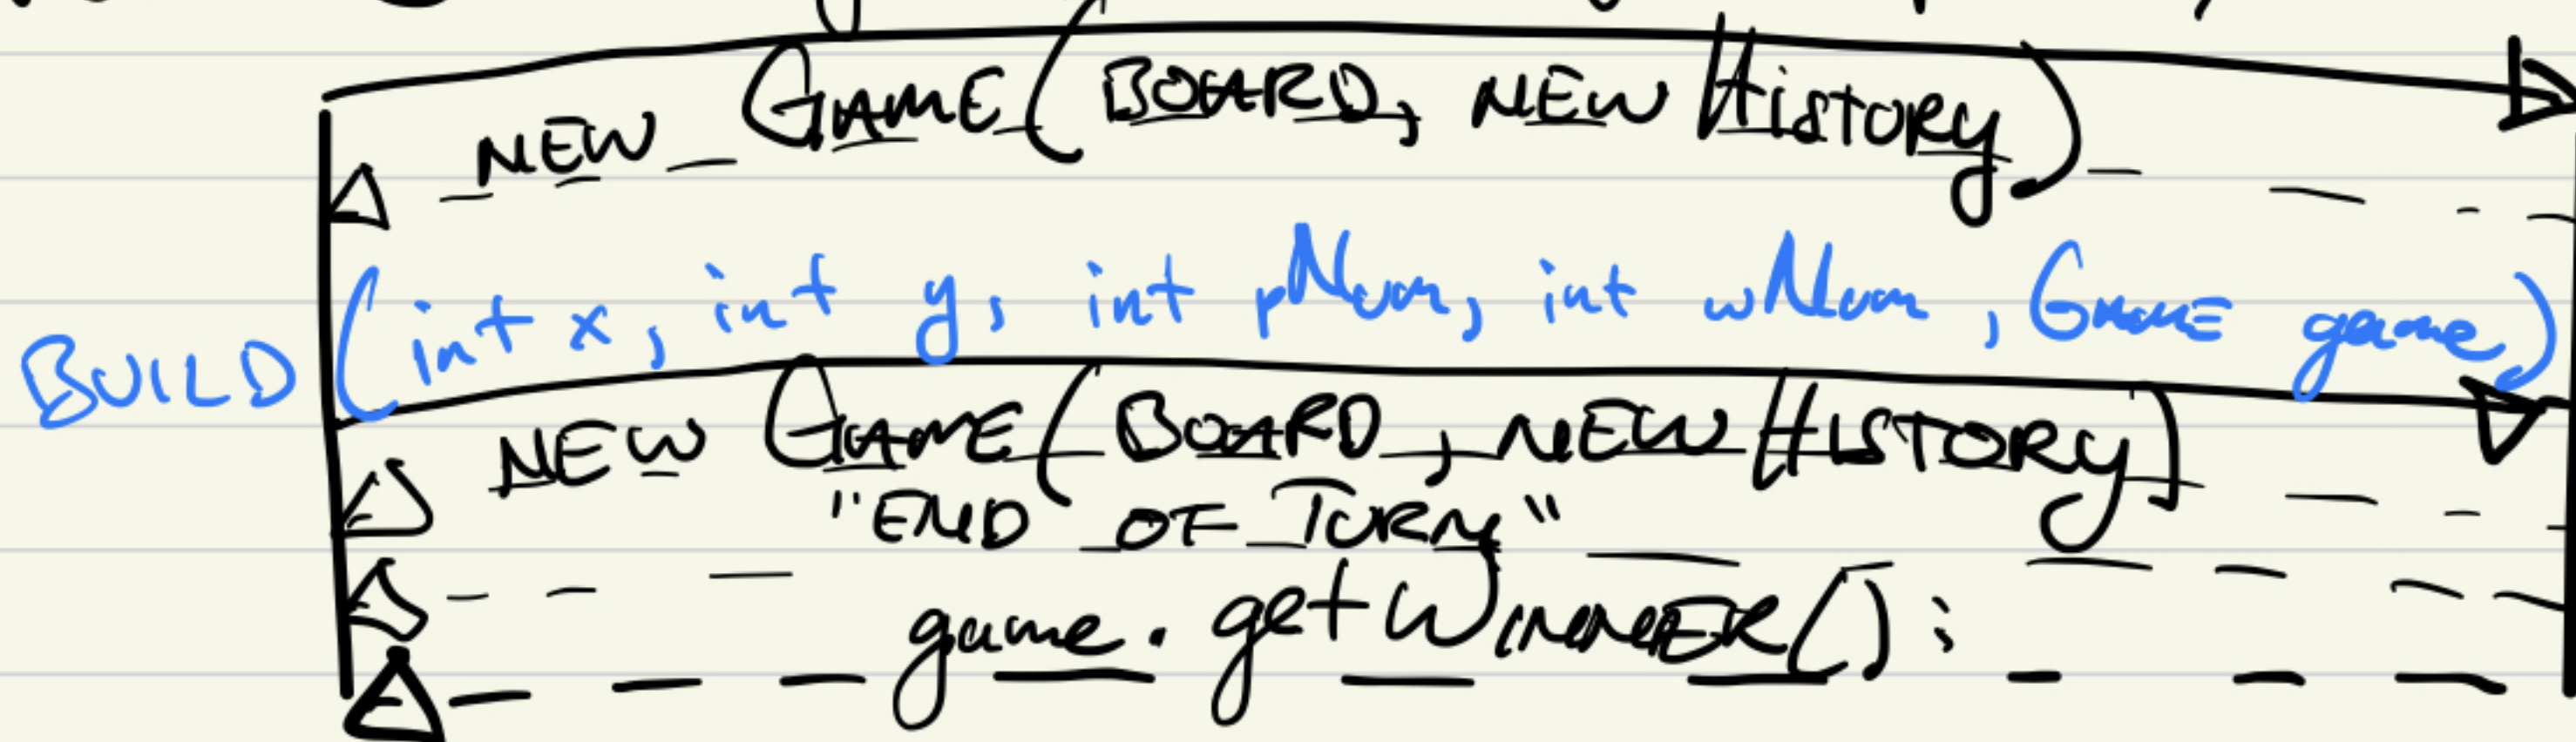 NEW GAME(BOARD, NEW HISTORY)
BUILD(int x, int y, int pNum, int wNum, GAME game)
NEW GAME(BOARD, NEW HISTORY)
"END OF TURN"
game.getWINNER();